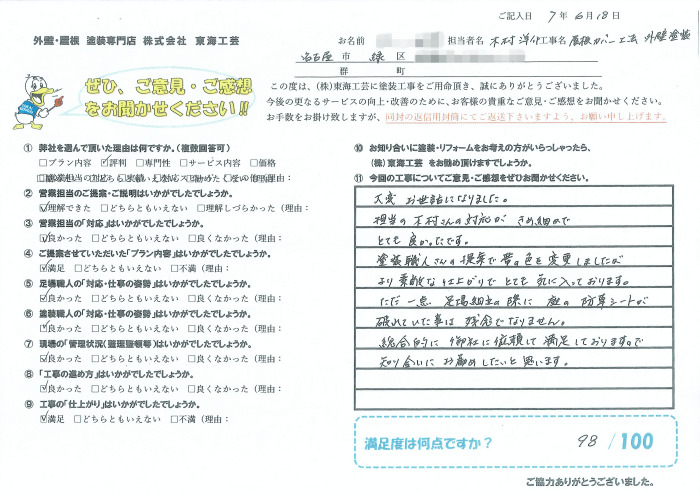 ご記入日 7年6月18日
外壁・屋根 塗装専門店 株式会社 東海工芸
お名前 担当者名 木村洋介 工事名 屋根カバー工法 外壁塗装
名古屋 市 緑 区
郡 町
ぜひ、ご意見・ご感想
をお聞かせください!!
この度は、(株)東海工芸に塗装工事をご用命頂き、誠にありがとうございました。
今後の更なるサービスの向上・改善のために、お客様の貴重なご意見・ご感想をお聞かせください。
お手数をお掛け致しますが、同封の返信用封筒にてご返送下さいますよう、お願い申し上げます。
① 弊社を選んで頂いた理由は何ですか。(複数回答可)
□プラン内容 ☑評判 □専門性 □サービス内容 □価格
② 営業担当のご提案・ご説明はいかがでしたでしょうか。
☑理解できた □どちらともいえない □理解しづらかった(理由:
③ 営業担当の「対応」はいかがでしたでしょうか。
☑良かった □どちらともいえない □良くなかった(理由:
④ ご提案させていただいた「プラン内容」はいかがでしたでしょうか。
☑満足 □どちらともいえない □不満(理由:
⑤ 足場職人の「対応・仕事の姿勢」はいかがでしたでしょうか。
☑良かった □どちらともいえない □良くなかった(理由:
⑥ 塗装職人の「対応・仕事の姿勢」はいかがでしたでしょうか。
☑良かった □どちらともいえない □良くなかった(理由:
⑦ 現場の「管理状況(整理整頓等)はいかがでしたでしょうか。
☑良かった □どちらともいえない □良くなかった(理由:
⑧ 「工事の進め方」はいかがでしたでしょうか。
☑良かった □どちらともいえない □良くなかった(理由:
⑨ 工事の「仕上がり」はいかがでしたでしょうか。
☑満足 □どちらともいえない □不満(理由:
⑩ お知り合いに塗装・リフォームをお考えの方がいらっしゃったら、
(株)東海工芸 をお勧め頂けますでしょうか。
⑪ 今回の工事についてご意見・ご感想をぜひお聞かせください。
大変お世話になりました。
担当の木村さんの対応が きめ細かで
とても良かったです。
塗装職人さんの提案で帯の色を変更しましたが
より素敵な仕上がりでとても気に入っております。
ただ一点 足場組立の際に 庭の防草シートが
破れていた事は 残念でなりません。
総合的に 御社に依頼して満足しておりますので
知り合いに お勧めしたいと思います。
満足度は何点ですか? 98/100
ご協力ありがとうございました。